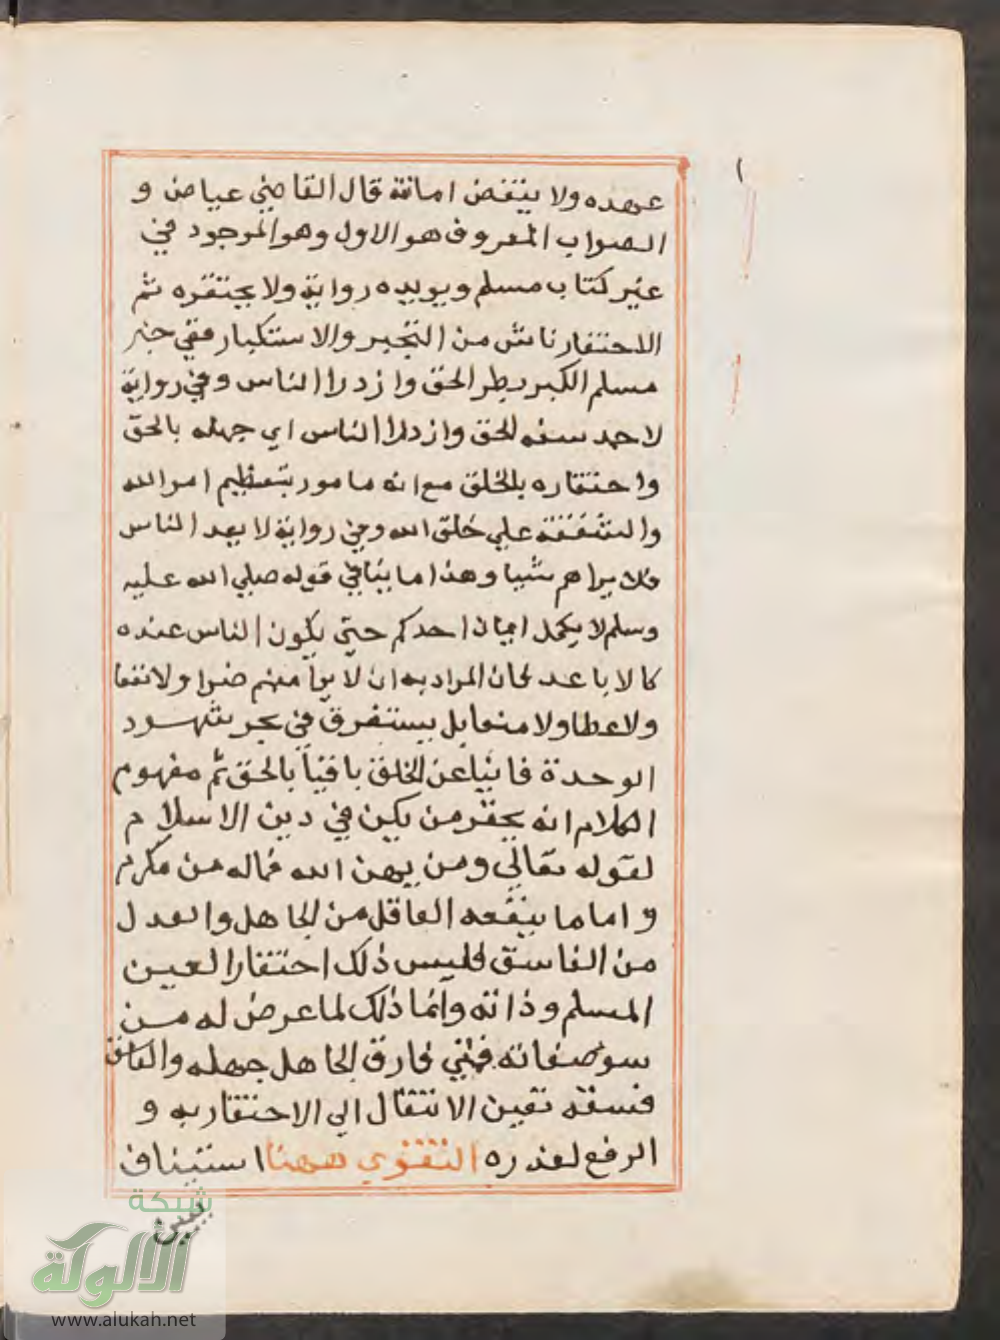 عهده ولا ينقض امانته قال القاضي عياض و
الصواب المعروف هو الاول وهو الموجود في
غير كتاب مسلم ويويده رواية ولا يحتقره ثم
الاحتقار ناش من التجبر والاستكبار ففي خبر
مسلم الكبر بطر الحق وازدرا الناس وفي رواية
لاحمد سفه الحق وازدرا الناس اي جهله بالحق
واحتقاره بالخلق مع انه مامور بتعظيم امر الله
والشفقة علي خلق الله وفي رواية لا يعد الناس
فلا يراهم شيا وهذا ما ينافي قوله صلي الله عليه
وسلم لا يكمل ايمان احدكم حتي يكون الناس عنده
كالاباعد لان المراد به ان لا يرا منهم ضرا ولا نفعا
ولا عطا ولا منعا بل يستغرق في بحر شهود
الوحدة فانيا عن الخلق باقيا بالحق ثم مفهوم
الكلام انه يحقر من يكن في دين الاسلام
لقوله تعالي ومن يهن الله فماله من مكرم
و اما ما ينقمه العاقل من الجاهل والعدل
من الفاسق فليس ذلك احتقارا لعين
المسلم وذاته وانما ذلك لما عرض له من
سو صفاته فمتي فارق الجاهل جهله والفاسق
فسقه تعين الانتقال الي الاحتقار به و
الرفع لقدره التقوي ههنا استيناف
يبين
شبكة
الألوكة
www.alukah.net